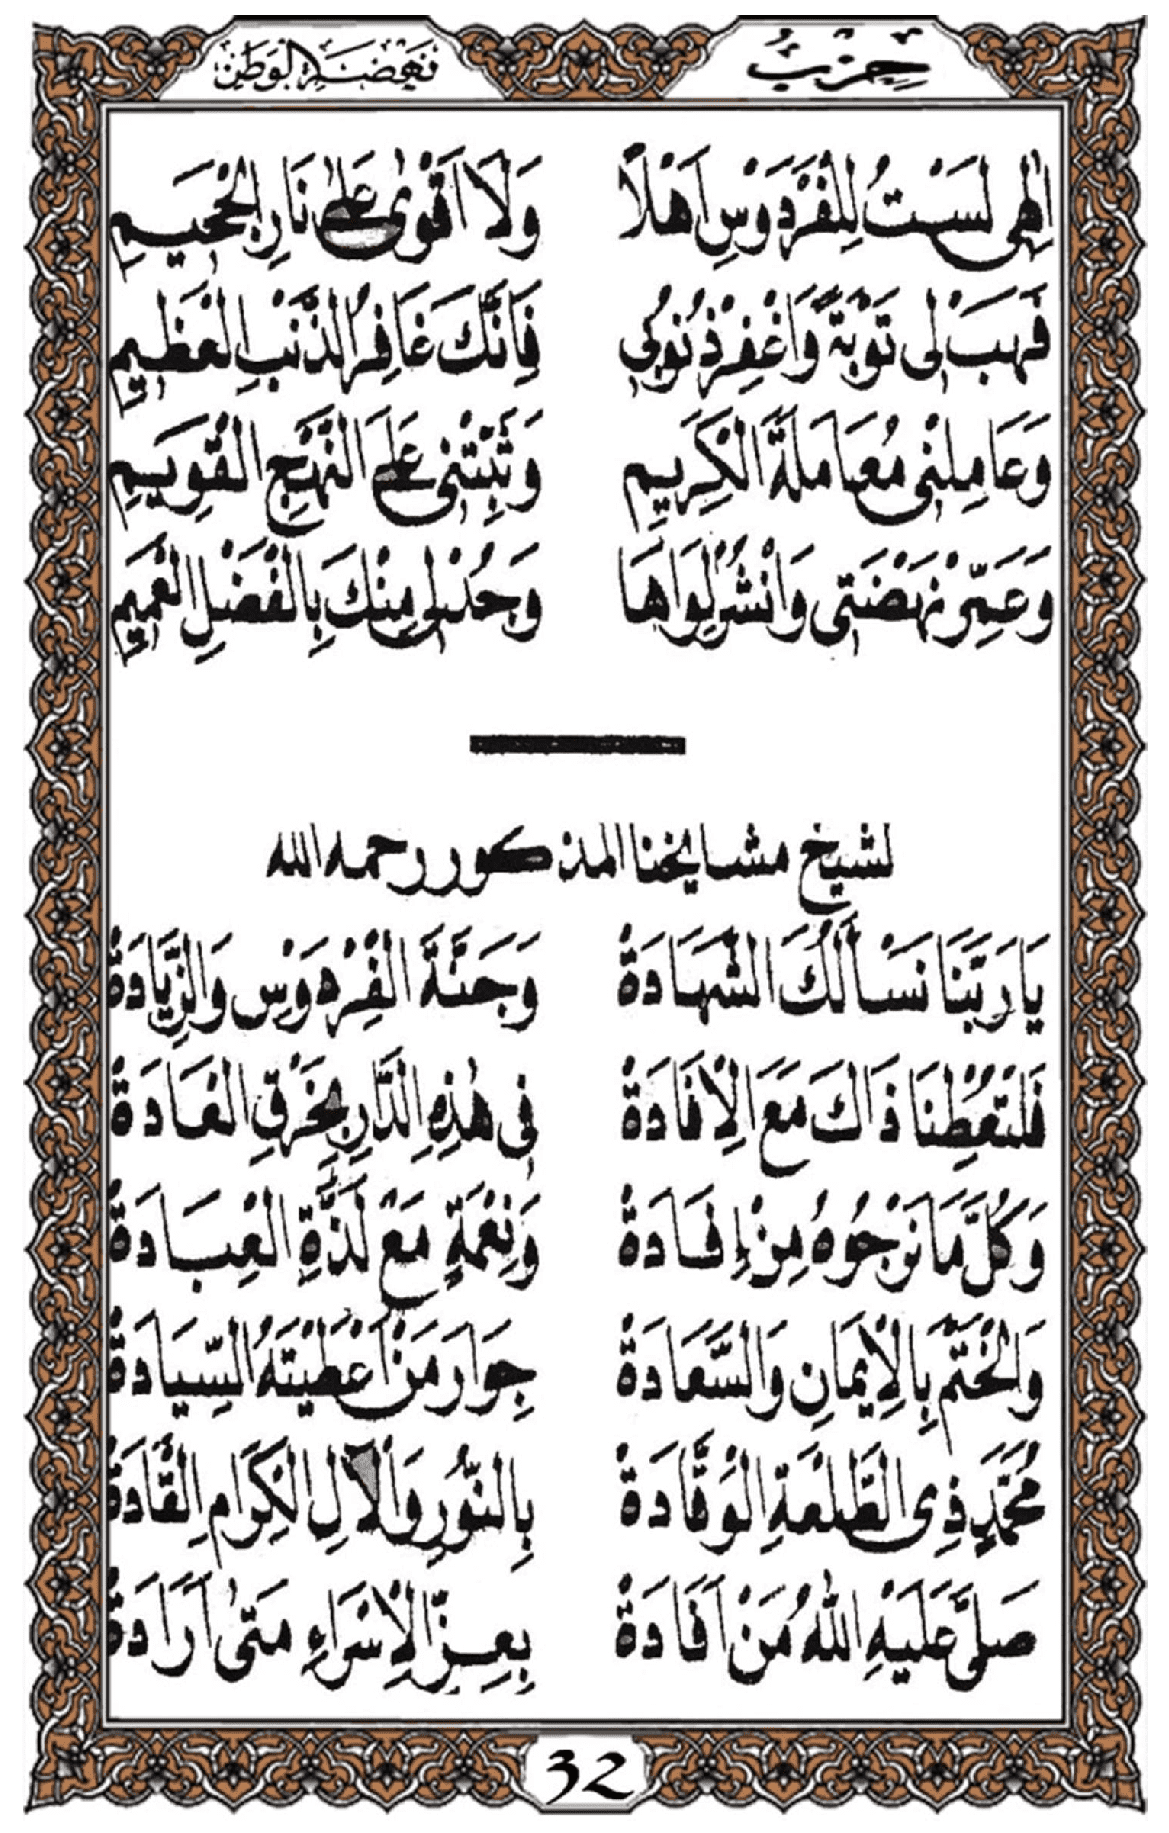 حِزْبُ نَهْضَةِ الْوَطَنِ
اِلٰهِى لَسْتُ لِلْفِرْدَوْسِ اَهْلًا وَلَا اَقْوٰى عَلٰى نَارِ الْجَحِيْمِ
فَهَبْ لِى تَوْبَةً وَاغْفِرْ ذُنُوْبِى فَاِنَّكَ غَافِرُ الذَّنْبِ الْعَظِيْمِ
وَعَامِلْنِى مُعَامَلَةَ الْكَرِيْمِ وَثَبِّتْنِى عَلَى النَّهْجِ الْقَوِيْمِ
وَعَمِّرْ نَهْضَتِى وَانْشُرْ لِوَاهَا وَجُدْ لِى مِنْكَ بِالْفَضْلِ الْعَمِيْمِ
لشيخ مشايخنا المذكور رحمه الله
يَا رَبَّنَا نَسْأَلُكَ الشَّهَادَةْ وَجَنَّةَ الْفِرْدَوْسِ وَالزِّيَادَةْ
فَلْتُعْطِنَا ذَاكَ مَعَ الْاِفَادَةْ فِى هٰذِهِ الدَّارِ بِخَرْقِ الْعَادَةْ
وَكُلَّ مَا نَرْجُوهُ مِنْ إِفَادَةْ وَنِعْمَةٍ مَعْ لَذَّةِ الْعِبَادَةْ
وَالْخَتْمَ بِالْاِيْمَانِ وَالسَّعَادَةْ جِوَارَ مَنْ اَعْطَيْتَهُ السِّيَادَةْ
مُحَمَّدٍ ذِى الطَّلْعَةِ الْوَقَّادَةْ بِالنُّوْرِ وَالْآلِ الْكِرَامِ الْقَادَةْ
صَلَّى عَلَيْهِ اللّٰهُ مَنْ اَفَادَةْ بِعِزِّ الْاِسْرَاءِ مَتٰى اَرَادَةْ
32